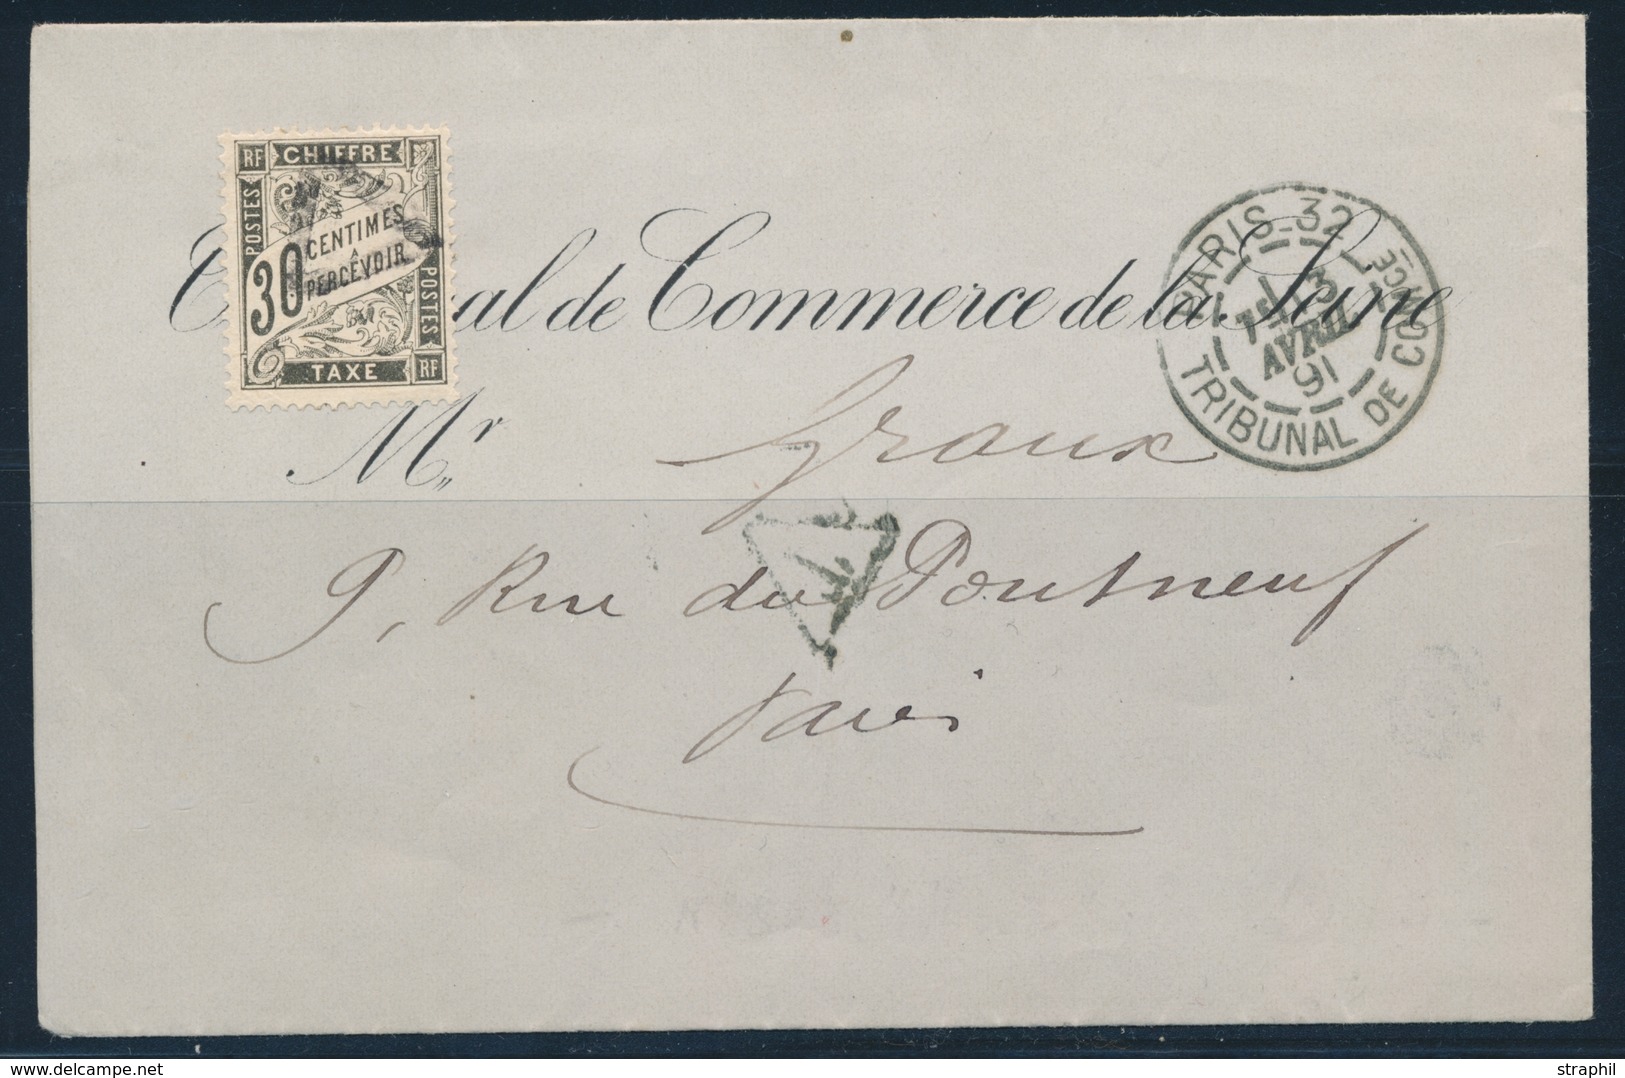 RF CHIFFRE
POSTES
30 CENTIMES
A
PERCEVOIR
POSTES
TAXE RF
al de Commerce de la Seine
PARIS_32
TRIBUNAL DE COMMCE
AVRIL
91
Mr Graux
9, Rue du Pontneuf
Paris
www.delcampe.net
straphil